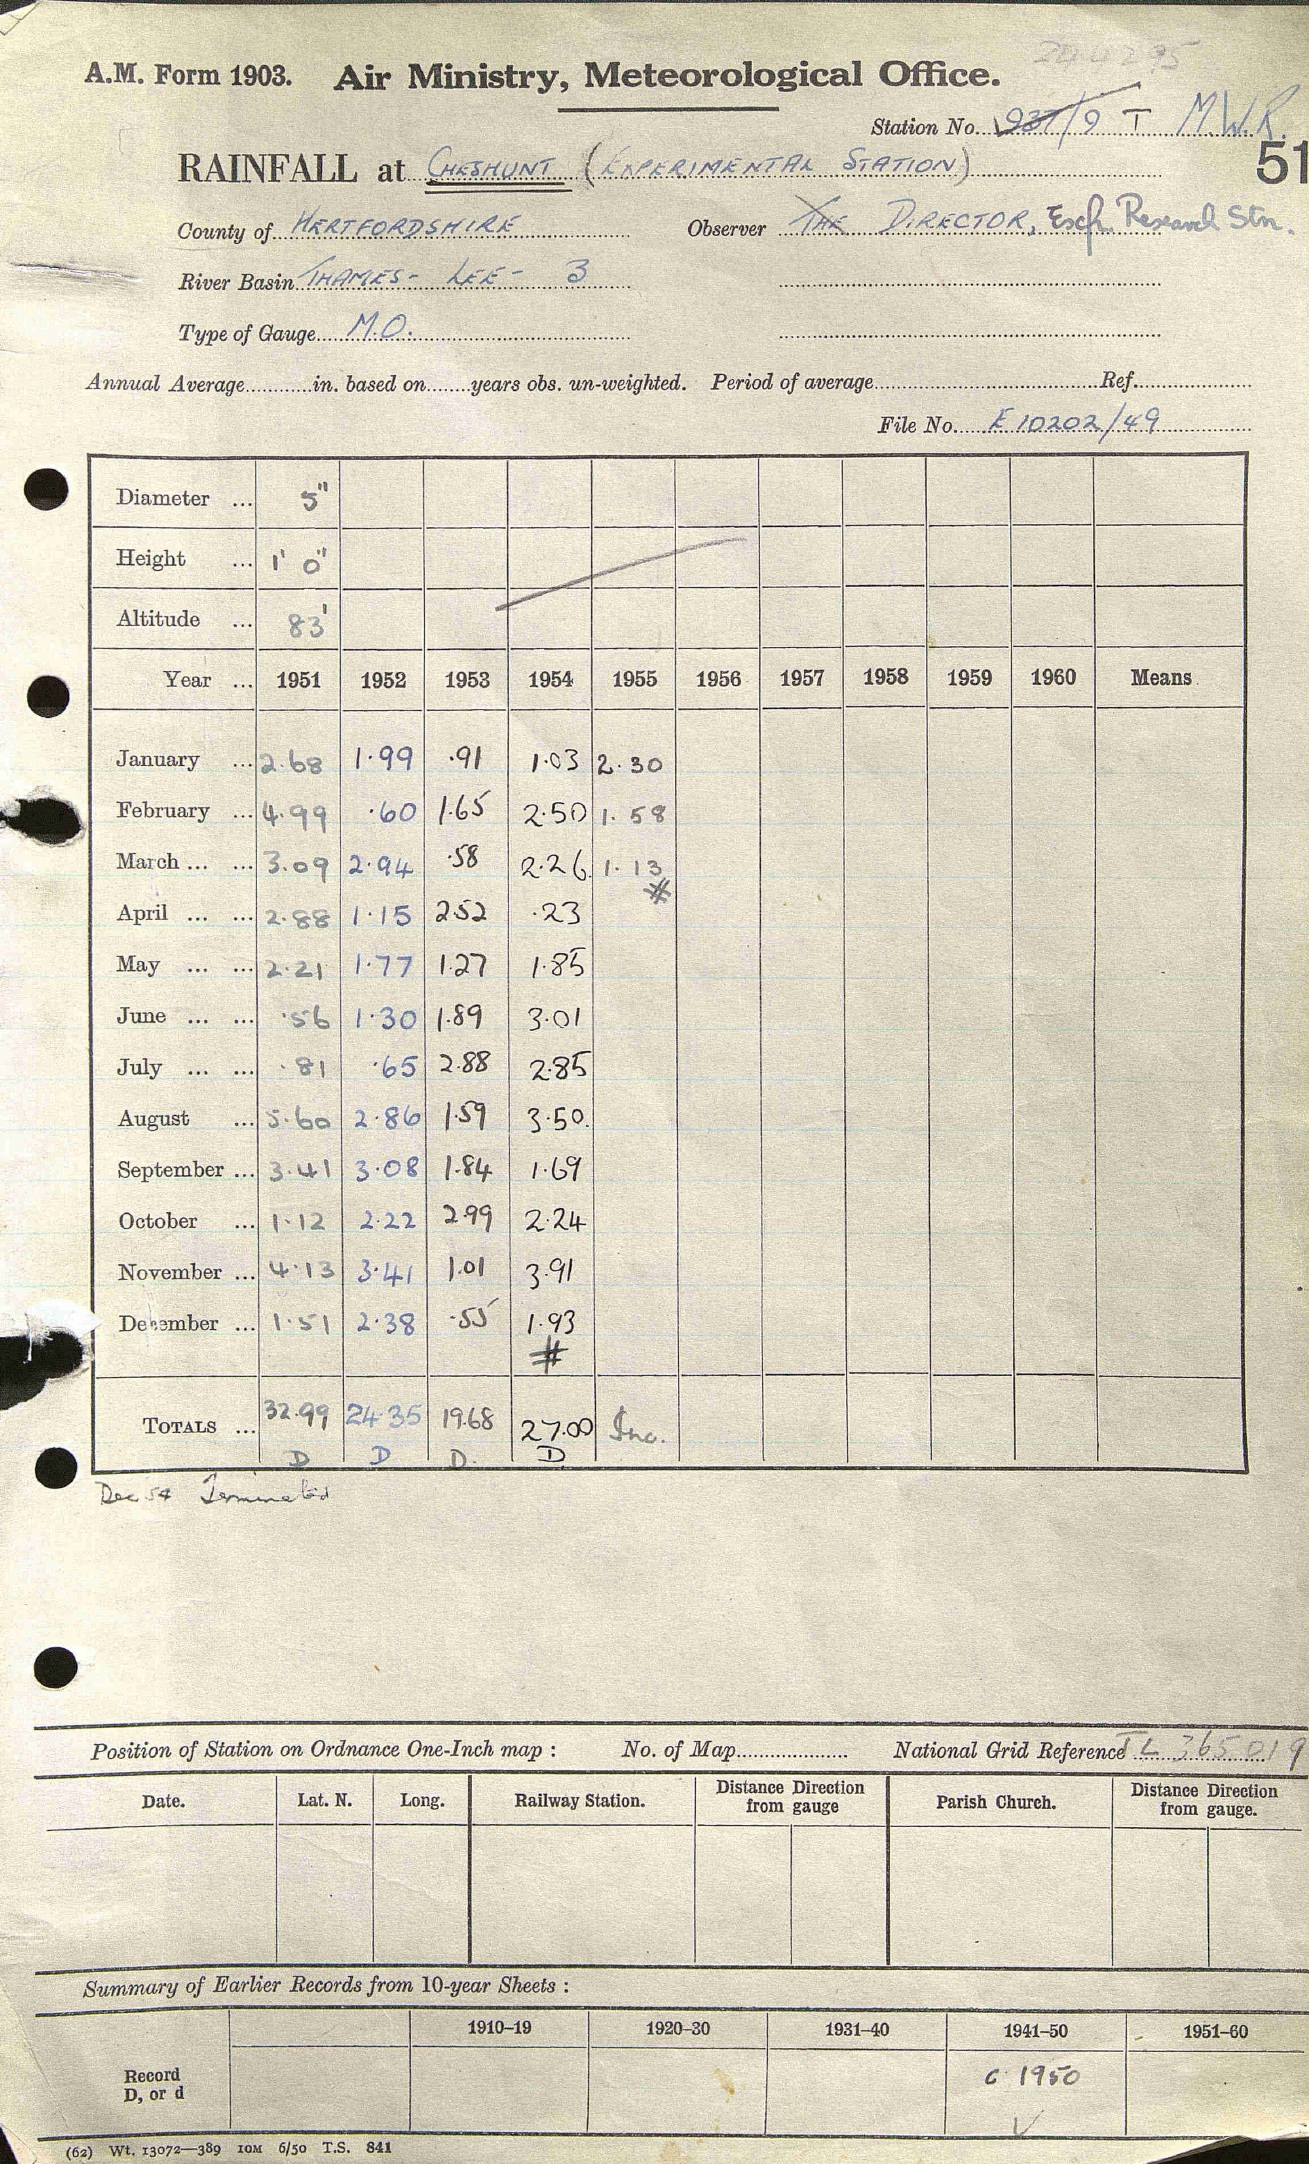 244295
A.M. Form 1903. Air Ministry, Meteorological Office.
Station No. 937/9 T M.W.R.
51
RAINFALL at CHESHUNT (EXPERIMENTAL STATION)
County of HERTFORDSHIRE Observer THE DIRECTOR, Exp. Research Stn.
River Basin THAMES - LEE - 3
Type of Gauge M.O.
Annual Average in. based on years obs. un-weighted. Period of average Ref.
File No. E 10202/49
Diameter ... 5"
Height ... 1' 0"
Altitude ... 83'
Year ... 1951 1952 1953 1954 1955 1956 1957 1958 1959 1960 Means
January ... 2.68 1.99 .91 1.03 2.30
February ... 4.99 .60 1.65 2.50 1.58
March ... ... 3.09 2.94 .58 2.26 1.13
#
April ... ... 2.88 1.15 2.52 .23
May ... ... 2.21 1.77 1.27 1.85
June ... ... .56 1.30 1.89 3.01
July ... ... .81 .65 2.88 2.85
August ... 5.60 2.86 1.59 3.50
September ... 3.41 3.08 1.84 1.69
October ... 1.12 2.22 2.99 2.24
November ... 4.13 3.41 1.01 3.91
December ... 1.51 2.38 .55 1.93
#
TOTALS ... 32.99 24.35 19.68 27.00 Inc.
D D D. D
Dec 54 Terminated
Position of Station on Ordnance One-Inch map : No. of Map National Grid Reference TL 365019
Date. Lat. N. Long. Railway Station. Distance Direction from gauge Parish Church. Distance Direction from gauge.
Summary of Earlier Records from 10-year Sheets :
1910–19 1920–30 1931–40 1941–50 1951–60
Record D, or d c 1950
(62) Wt. 13072—389 10M 6/50 T.S. 841